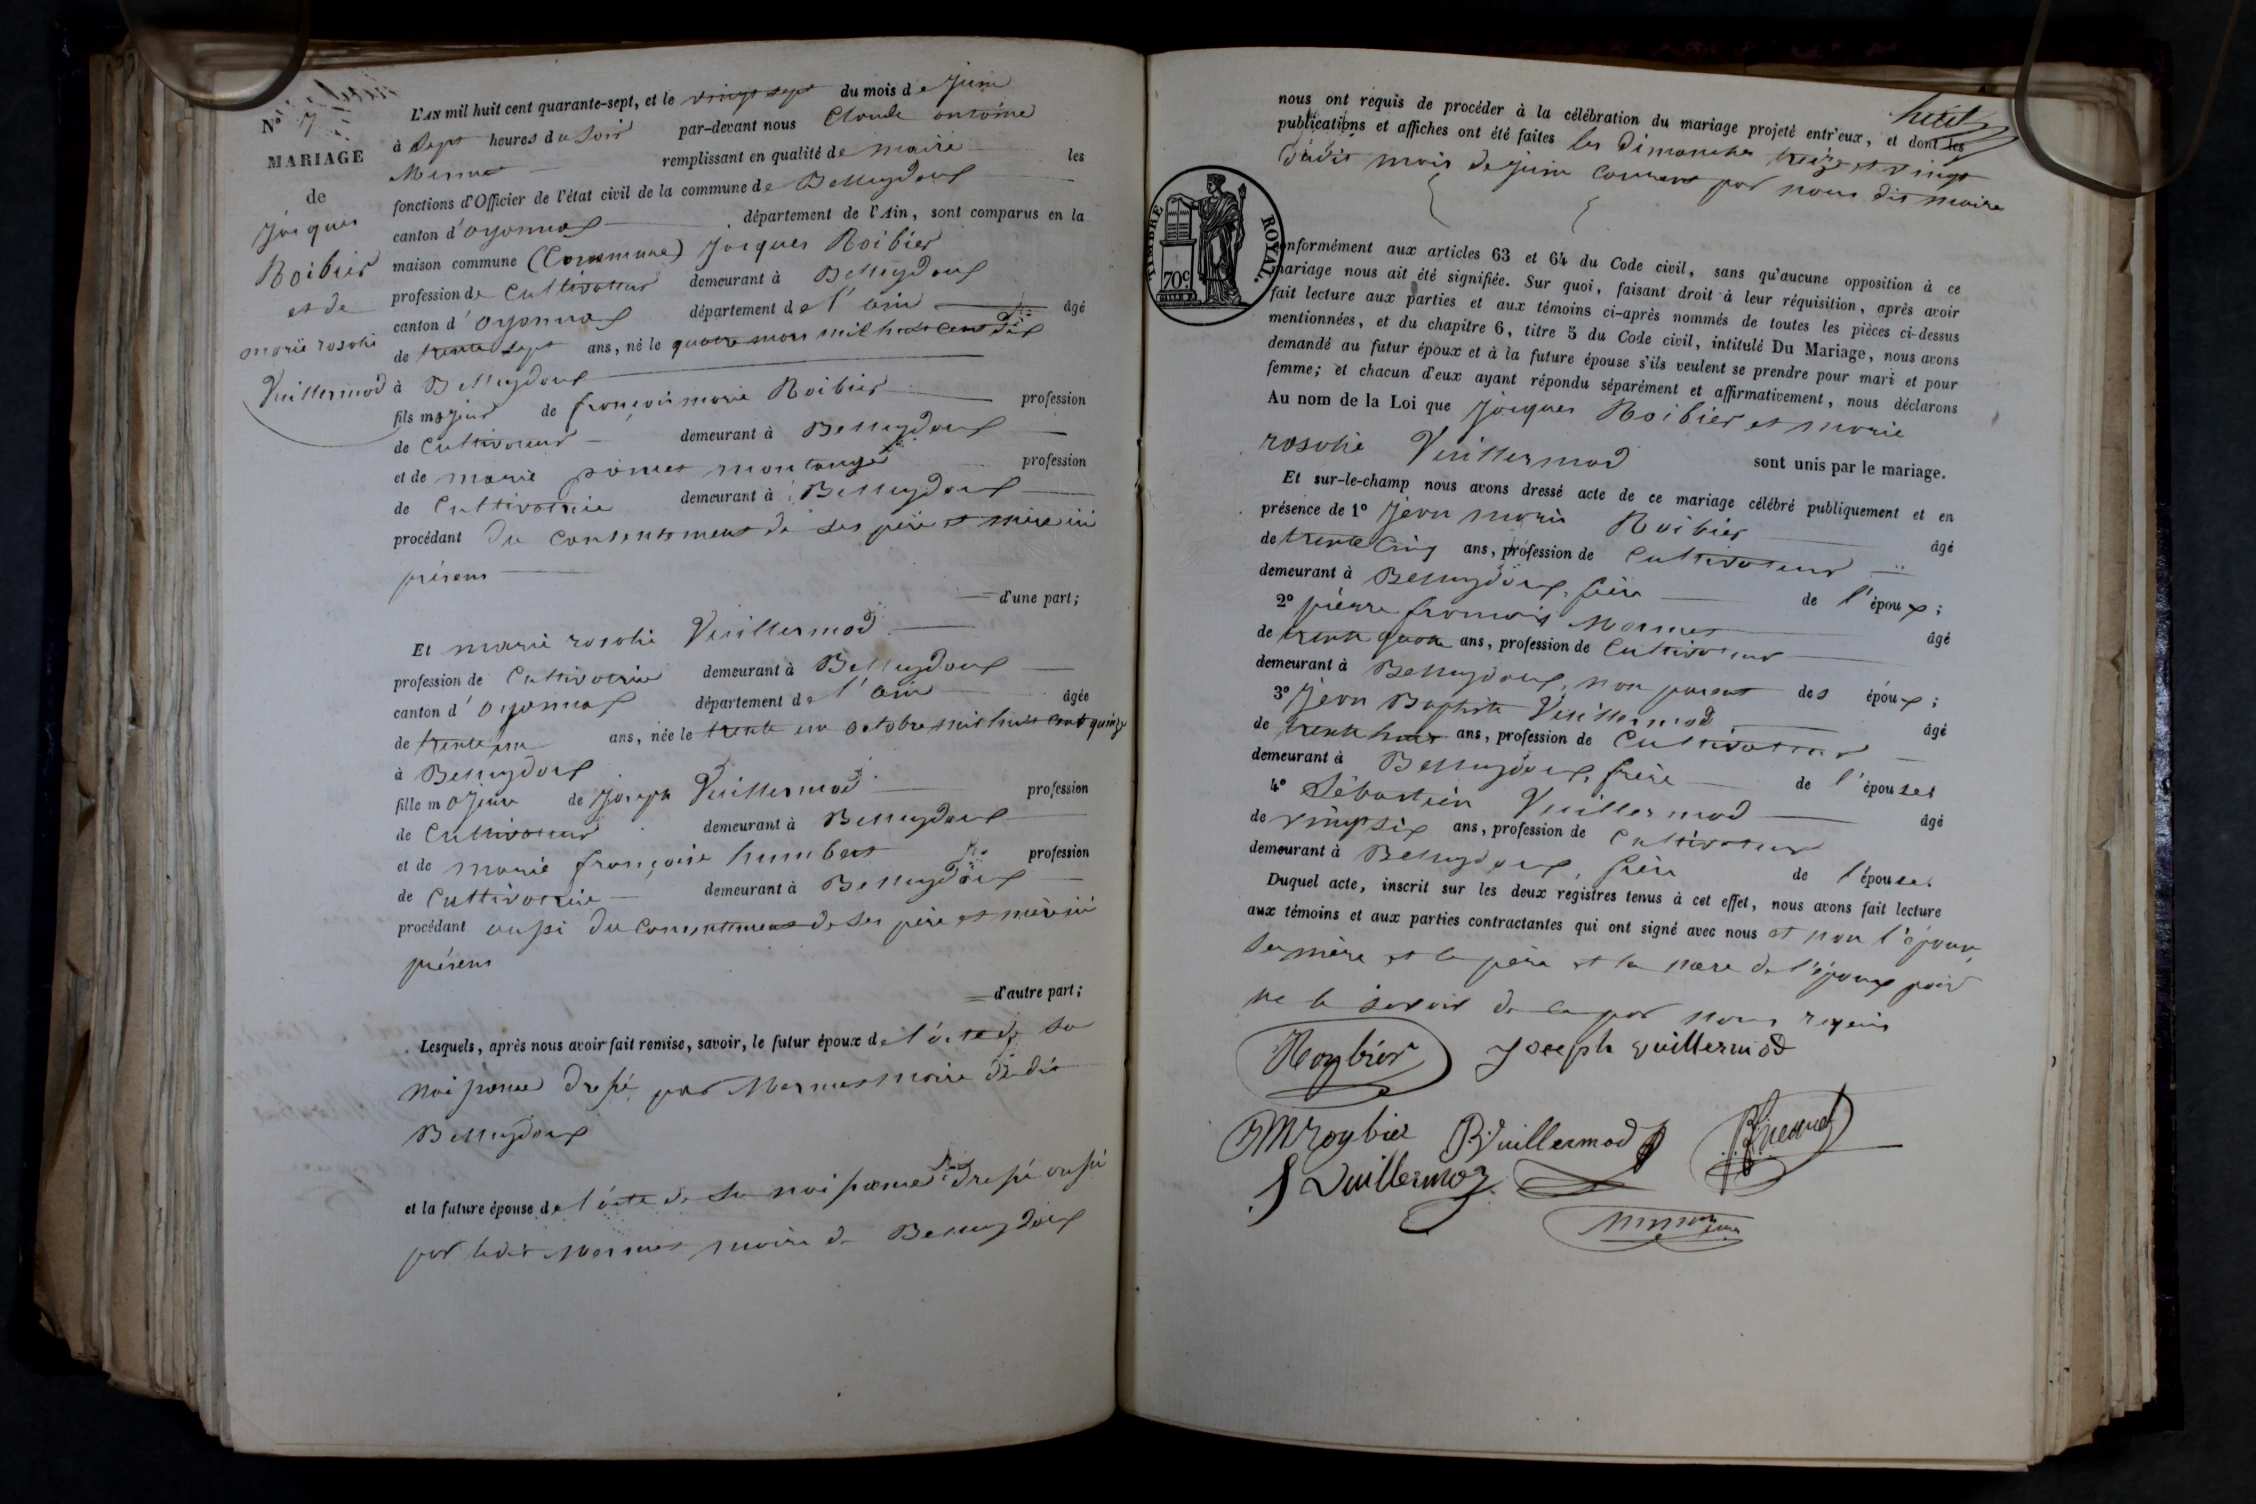 L'AN mil huit cent quarante-sept, et le vingt sept du mois de Juin
N° 7
à Sept heures du Soir par-devant nous Claude antoine
MARIAGE
Mermet remplissant en qualité de maire les
de
fonctions d'Officier de l'état civil de la commune de Belleydoux
Jacques
canton d'oyonnax département de l'Ain, sont comparus en la
Roibier
maison commune (Commune) Jacques Roibier
et de
profession de Cultivateur demeurant à Belleydoux
canton d'Oyonnax département de l'ain âgé
marie rosalie
de trente sept ans, né le quatre mars mil huit cent dix
Vuillermod
à Belleydoux
fils majeur de françois marie Roibier profession
de Cultivateur demeurant à Belleydoux
et de marie montange profession
de Cultivatrice demeurant à Belleydoux
procédant du consentement de ses père et mère ici
présens
d'une part;
Et marie rosalie Vuillermod
profession de Cultivatrice demeurant à Belleydoux
canton d'oyonnax département de l'ain âgée
de trente un ans, née le trente un octobre mil huit cent quinze
à Belleydoux
fille majeure de Joseph Vuillermod profession
de Cultivateur demeurant à Belleydoux
et de marie françoise humbert profession
de Cultivatrice demeurant à Belleydoux
procédant aussi du consentement de ses père et mère ici
présens
d'autre part;
Lesquels, après nous avoir fait remise, savoir, le futur époux de l'acte de sa
par Mermet maire dudit
Belleydoux
et la future épouse de l'acte de sa aussi
par ledit Mermet maire de Belleydoux
nous ont requis de procéder à la célébration du mariage projeté entr'eux, et dont les
publications et affiches ont été faites les dimanches treize et vingt
dudit mois de juin courant par nous dit maire
TIMBRE ROYAL.
70c
conformément aux articles 63 et 64 du Code civil, sans qu'aucune opposition à ce
mariage nous ait été signifiée. Sur quoi, faisant droit à leur réquisition, après avoir
fait lecture aux parties et aux témoins ci-après nommés de toutes les pièces ci-dessus
mentionnées, et du chapitre 6, titre 5 du Code civil, intitulé Du Mariage, nous avons
demandé au futur époux et à la future épouse s'ils veulent se prendre pour mari et pour
femme; et chacun d'eux ayant répondu séparément et affirmativement, nous déclarons
Au nom de la Loi que Jacques Roibier et marie
rosalie Vuillermod sont unis par le mariage.
Et sur-le-champ nous avons dressé acte de ce mariage célébré publiquement et en
présence de 1° Jean marie Roibier âgé
de trente cinq ans, profession de Cultivateur
demeurant à Belleydoux, frère de l'époux;
2° pierre françois Mermet âgé
de trente quatre ans, profession de Cultivateur
demeurant à Belleydoux, non parent des époux;
3° Jean Baptiste Vuillermod âgé
de trente huit ans, profession de Cultivateur
demeurant à Belleydoux, frère de l'épouse;
4° Sébastien Vuillermod âgé
de vingt six ans, profession de Cultivateur
demeurant à Belleydoux, frère de l'épouse.
Duquel acte, inscrit sur les deux registres tenus à cet effet, nous avons fait lecture
aux témoins et aux parties contractantes qui ont signé avec nous et non l'épouse,
sa mère et le père et la mère de l'époux pour
ne le savoir de ce par nous requis
Roybier Joseph vuillermod
JMroybier BVuillermod
S Vuillermoz